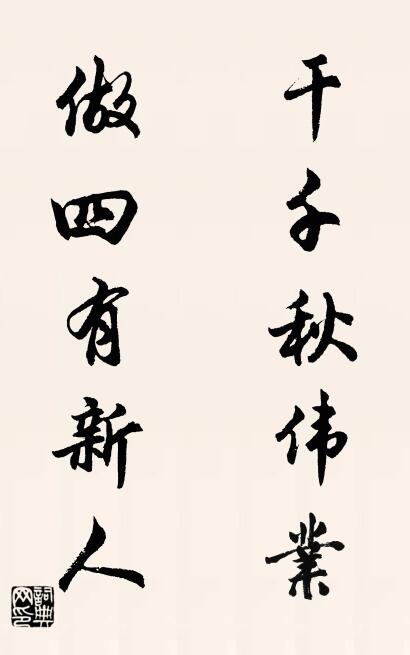 干千秋伟業
做四有新人
詞典网印